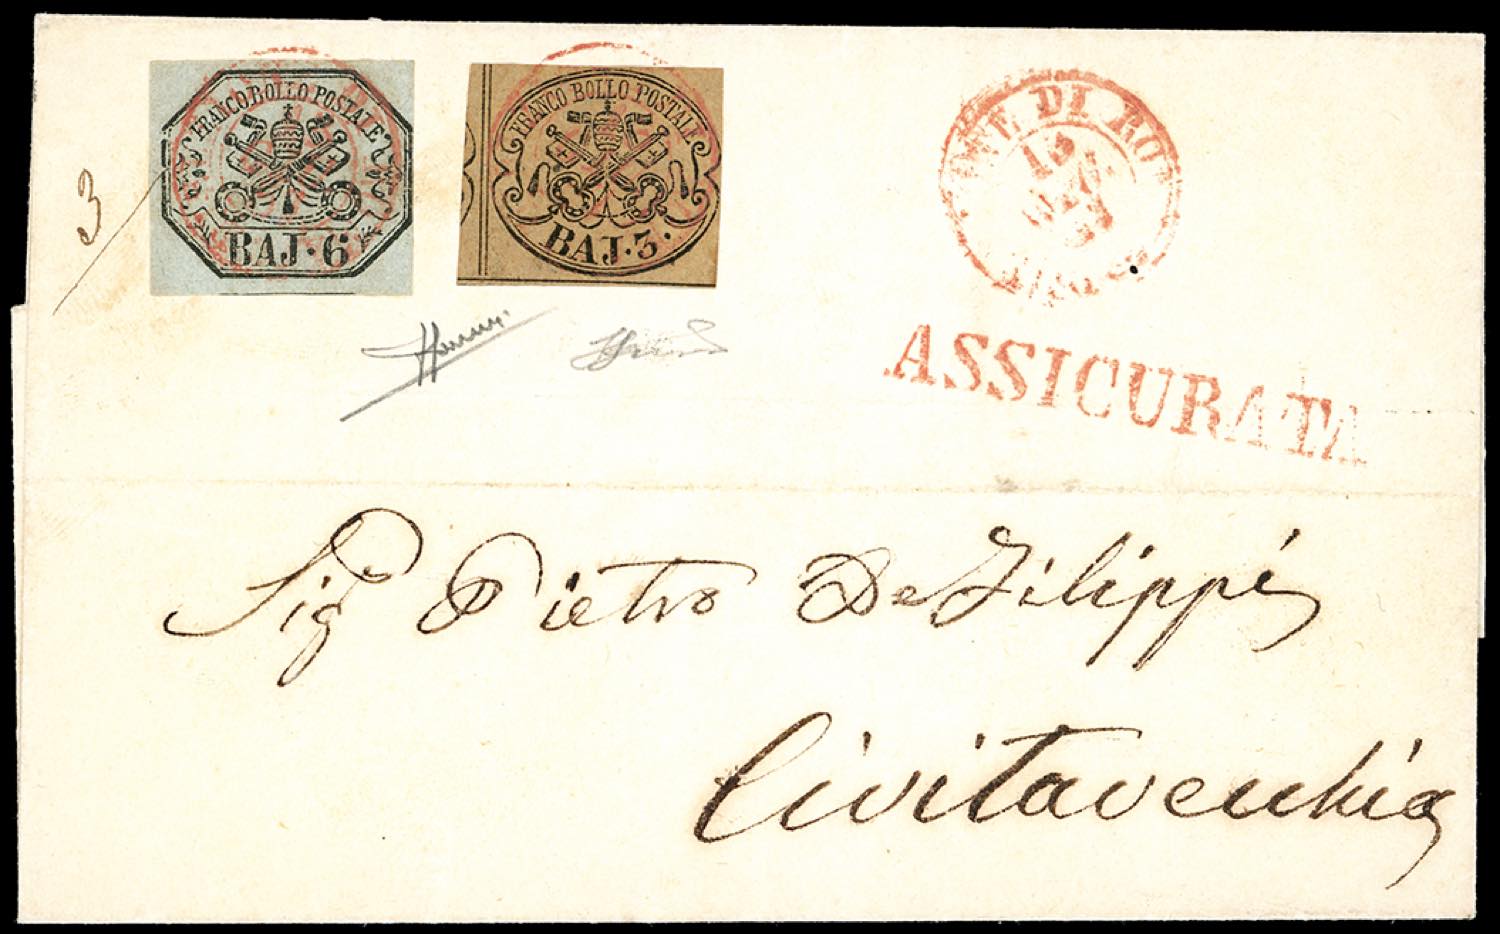 FRANCO BOLLO POSTALE
BAJ·6
FRANCO BOLLO POSTALE
BAJ·3·
DI RO
3
ASSICURATA
Sig Pietro De Filippi
Civitavecchia